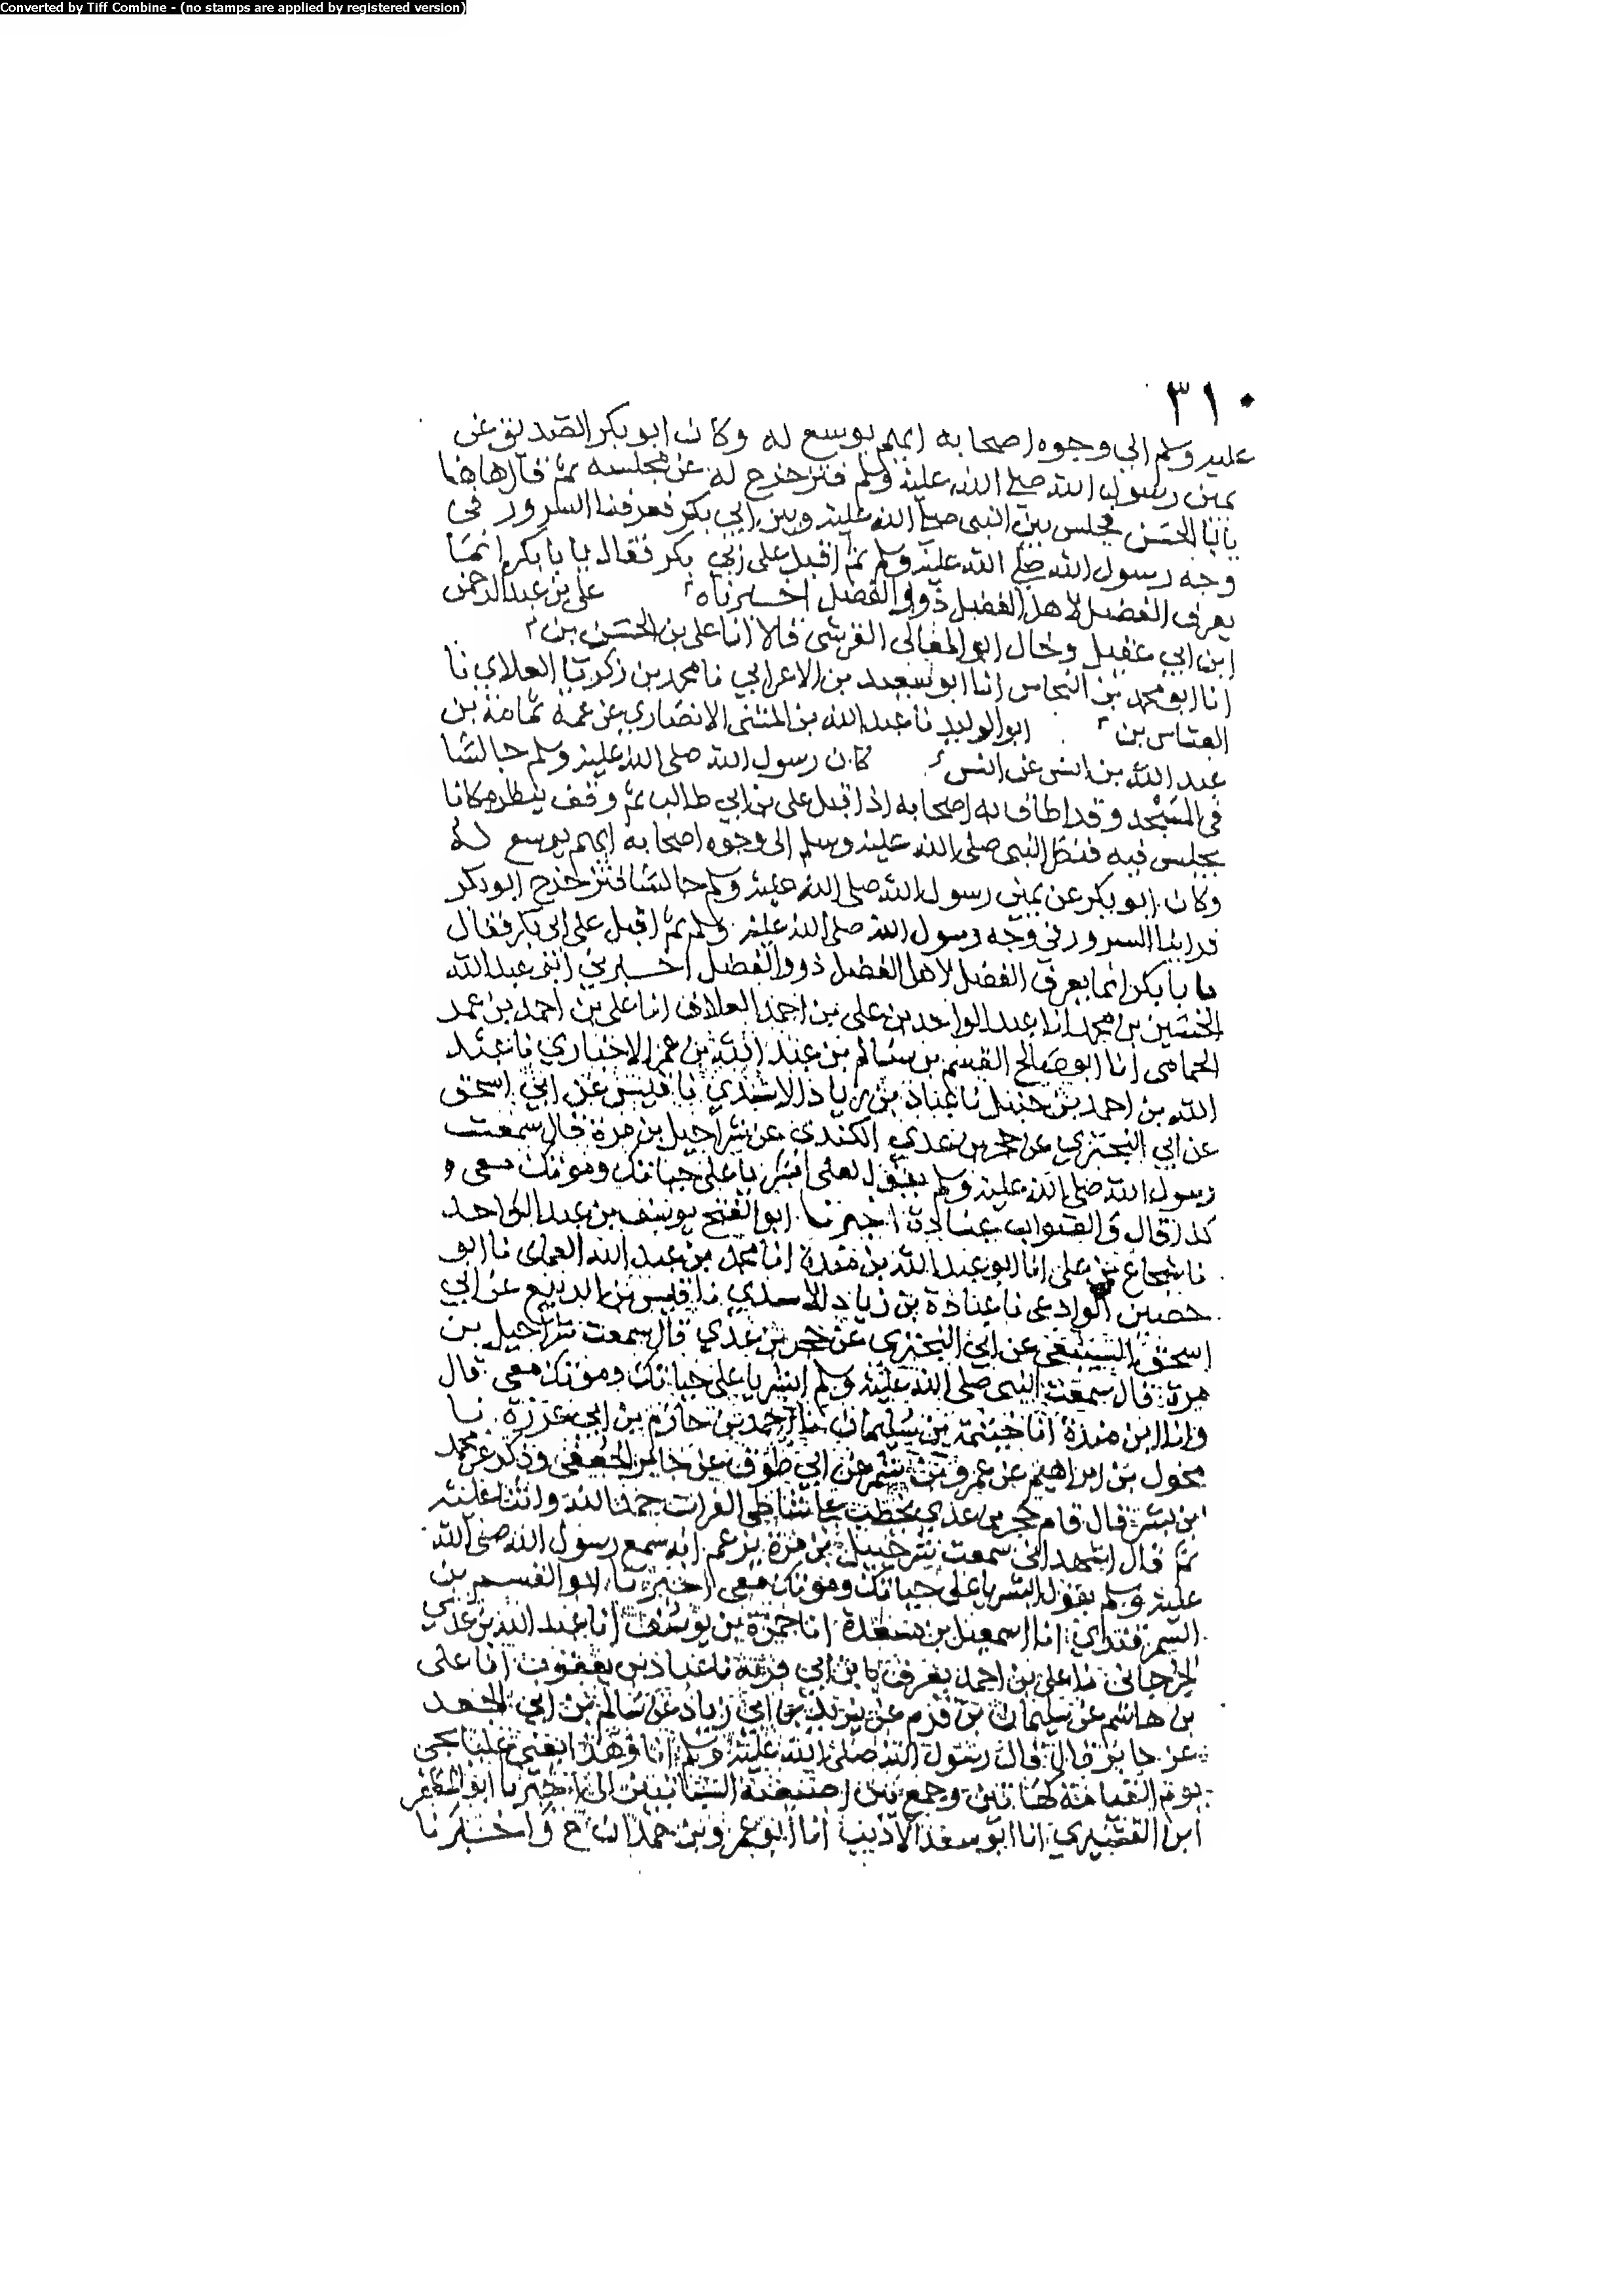 Converted by Tiff Combine - (no stamps are applied by registered version)
٣١٠
عليه وسلم الى وجوه اصحابه ايهم يوسع له وكان ابو بكر الصديق عن
يمين رسول الله صلى الله عليه وسلم فتزحزح له عن مجلسه ثم قال هاهنا
يابا الحسن فجلس بين النبي صلى الله عليه وبين ابي بكر فعرفنا السرور في
وجه رسول الله صلى الله عليه وسلم ثم اقبل على ابي بكر فقال يا با بكر انما
يعرف الفضل لاهل الفضل ذوو الفضل اخبرناه علي بن عبد الرحمن
ابن ابي عقيل وخال ابو المعالي القرشي قالا انا علي بن الحسن بن
انا ابو محمد بن النحاس انا ابو سعيد بن الاعرابي نا محمد بن زكريا العلاي نا
العباس بن ابو الوليد نا عبد الله بن المثنى الانصاري عن عمه ثمامة بن
عبد الله بن انس عن انس كان رسول الله صلى الله عليه وسلم جالسا
في المسجد وقد اطاف به اصحابه اذ اقبل علي بن ابي طالب ثم وقف ينظر مكانا
يجلس فيه فنظر النبي صلى الله عليه وسلم الى وجوه اصحابه ايهم يوسع له
وكان ابو بكر عن يمين رسول الله صلى الله عليه وسلم جالسا فتزحزح ابو بكر
فراينا السرور في وجه رسول الله صلى الله عليه وسلم ثم اقبل على ابي بكر فقال
يا با بكر انما يعرف الفضل لاهل الفضل ذوو الفضل اخبرني ابو عبد الله
الحسين بن محمد انا عبد الواحد بن علي بن احمد العلاف انا علي بن احمد بن عمر
الحمامي انا ابو صالح القسم بن سالم بن عبد الله بن عمر الاخباري نا عبد
الله بن احمد بن حنبل نا عباد بن زياد الاسدي نا قيس عن ابي اسحق
عن ابي البختري عن حجر بن عدي الكندي عن شراحيل بن مرة قال سمعت
رسول الله صلى الله عليه وسلم يقول لعلي ابشر يا علي حياتك وموتك معي و
كذا قال والصواب عبادة اخبرنا ابو الفتح يوسف بن عبد الواحد
نا شجاع بن علي انا ابو عبد الله بن مندة انا محمد بن عبد الله العماي نا ابو
حصين الوادعي نا عبادة بن زياد الاسدي نا قيس بن الربيع عن ابي
اسحق السبيعي عن ابي البختري عن حجر بن عدي قال سمعت شراحيل بن
مرة قال سمعت النبي صلى الله عليه وسلم ابشر يا علي حياتك وموتك معي قال
وانا ابن مندة انا خيثمة بن سليمان نا احمد بن حازم بن ابي غرزة نا
مخول بن ابراهيم عن عمرو بن شمر عن ابي طوق عن جابر الجعفي وذكر عن محمد
ابن بشر قال قام حجر بن عدي يخطب على شاطي الفرات حمد الله واثنا عليه
ثم قال اشهد اني سمعت شرحبيل بن مرة يزعم انه سمع رسول الله صلى الله
عليه وسلم يقول ابشر يا علي حياتك وموتك معي اخبرنا ابو القسم بن
السمرقندي انا اسمعيل بن مسعدة انا حمزة بن يوسف انا عبد الله بن عدي
الجرجاني نا علي بن احمد يعرف بابن ابي قربة نا عباد بن يعقوب انا علي
بن هاشم عن سليمان بن قرم عن يزيد بن ابي زياد عن سالم بن ابي الجعد
عن جابر قال قال رسول الله صلى الله عليه وسلم انا وهذا يعني عليا يجي
يوم القيامة كهاتين وجمع بين اصبعيه السبابتين اخبرنا ابو المظفر
ابن القشيري انا ابو سعد الاديب انا ابو عمرو بن حمدان ح واخبرنا